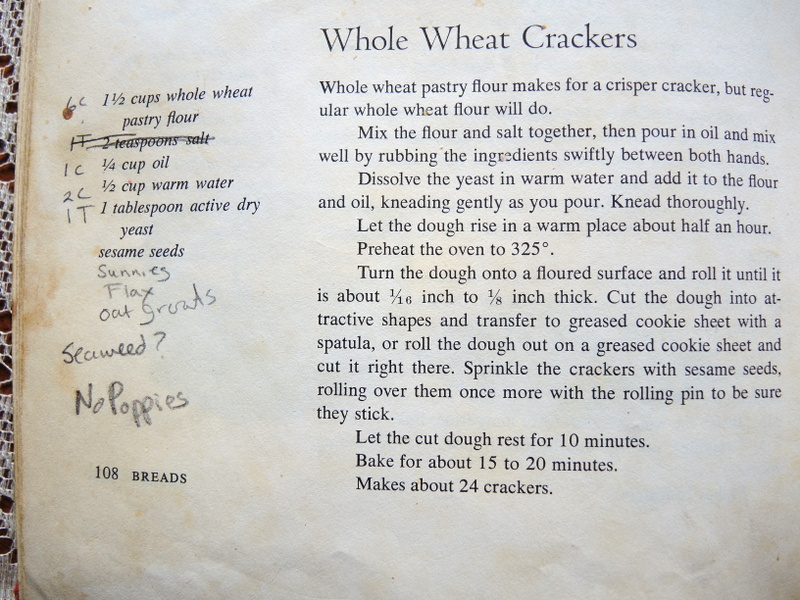 Whole Wheat Crackers
6C 1½ cups whole wheat
pastry flour
1T 2 teaspoons salt
1C ¼ cup oil
2C ½ cup warm water
1T 1 tablespoon active dry
yeast
sesame seeds
Sunnies
Flax
oat groats
Seaweed?
No Poppies
108 BREADS
Whole wheat pastry flour makes for a crisper cracker, but reg-
ular whole wheat flour will do.
Mix the flour and salt together, then pour in oil and mix
well by rubbing the ingredients swiftly between both hands.
Dissolve the yeast in warm water and add it to the flour
and oil, kneading gently as you pour. Knead thoroughly.
Let the dough rise in a warm place about half an hour.
Preheat the oven to 325°.
Turn the dough onto a floured surface and roll it until it
is about 1/16 inch to ⅛ inch thick. Cut the dough into at-
tractive shapes and transfer to greased cookie sheet with a
spatula, or roll the dough out on a greased cookie sheet and
cut it right there. Sprinkle the crackers with sesame seeds,
rolling over them once more with the rolling pin to be sure
they stick.
Let the cut dough rest for 10 minutes.
Bake for about 15 to 20 minutes.
Makes about 24 crackers.